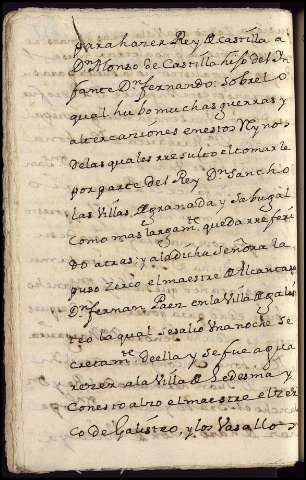 para hazer Rey de Castilla a
Dn. Alonso de Castilla hijo del In
fante Dn. fernando: sobre lo
qual hubo muchas guerras y
altercaziones en estos Rynos
de las quales rresulto el tomar le
por parte del Rey Dn. Sancho
las Villas de granada y Sabugal
como mas largamte. queda rrefori
do atras; y a la dicha Señora la
puso zerco el maestre de Alcantara
Dn. fernan Paez en la Villa de galis
teo la qual se salio una noche se
cretamte. de ella y se fue a gua
rezer a la Villa de Ledesma y
con esto alzo el maestre el zer
co de Galisteo, y los Vasallos